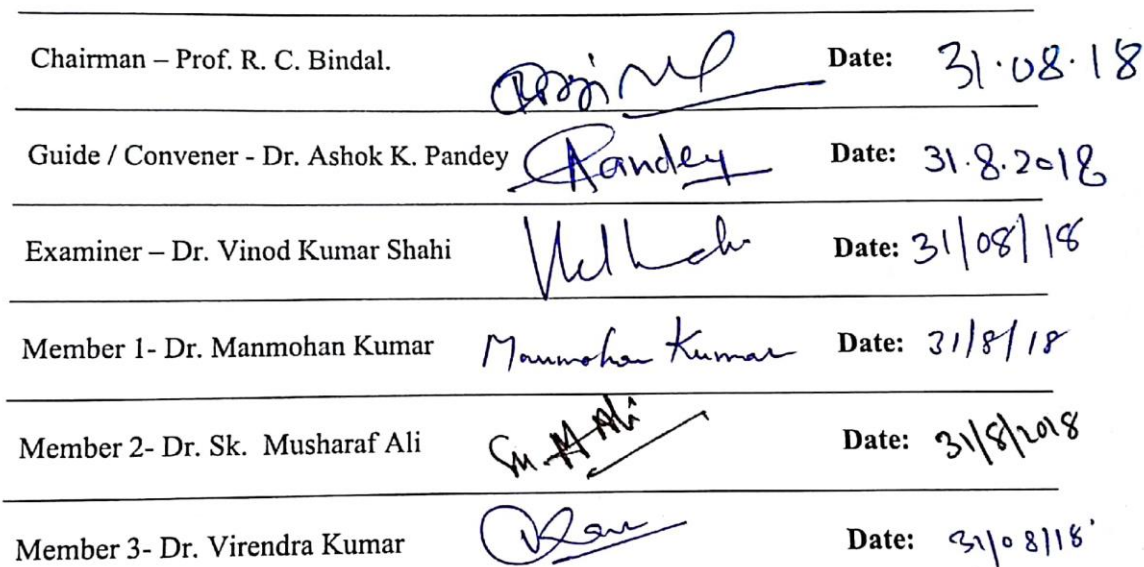 Chairman – Prof. R. C. Bindal. Date: 31.08.18
Guide / Convener - Dr. Ashok K. Pandey Pandey Date: 31.8.2018
Examiner – Dr. Vinod Kumar Shahi Date: 31/08/18
Member 1- Dr. Manmohan Kumar Manmohan Kumar Date: 31/8/18
Member 2- Dr. Sk. Musharaf Ali Sk. M Ali Date: 31/8/2018
Member 3- Dr. Virendra Kumar Date: 31/08/18